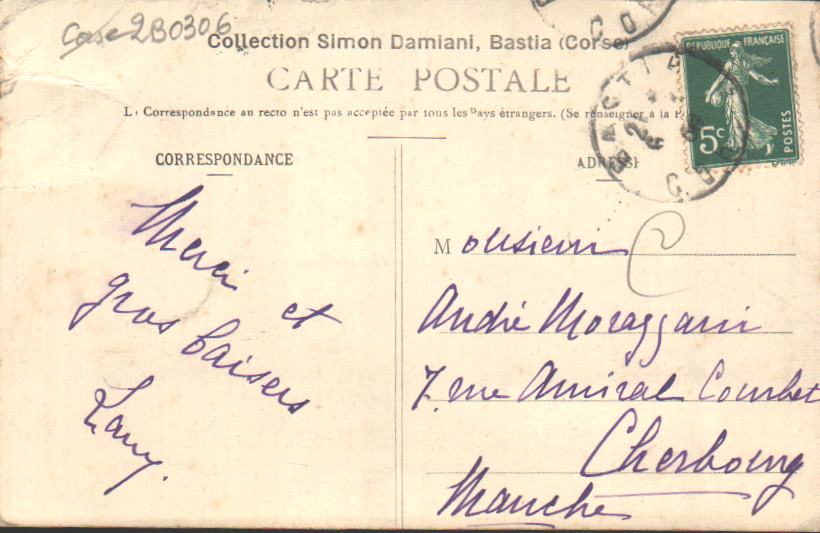 Case 2B0306
Collection Simon Damiani, Bastia (Corse)
CARTE POSTALE
La Correspondance au recto n'est pas acceptée par tous les Pays étrangers. (Se renseigner à la P
CORRESPONDANCE
ADRESSE
REPUBLIQUE FRANÇAISE
5c
POSTES
BASTIA
CO
Merci et
gros baisers
Monsieur
André Moraggani
7 rue Amiral Courbet
Cherbourg
Manche